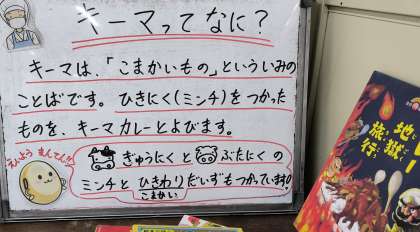 キーマってなに？
キーマは、「こまかいもの」といういみの
ことばです。ひきにく(ミンチ)をつかった
ものを、キーマカレーとよびます。
えいよう まんてん!!
ぎゅうにくとぶたにくの
ミンチとひきわりだいずもつかっています!
こまかい
地獄
旅行